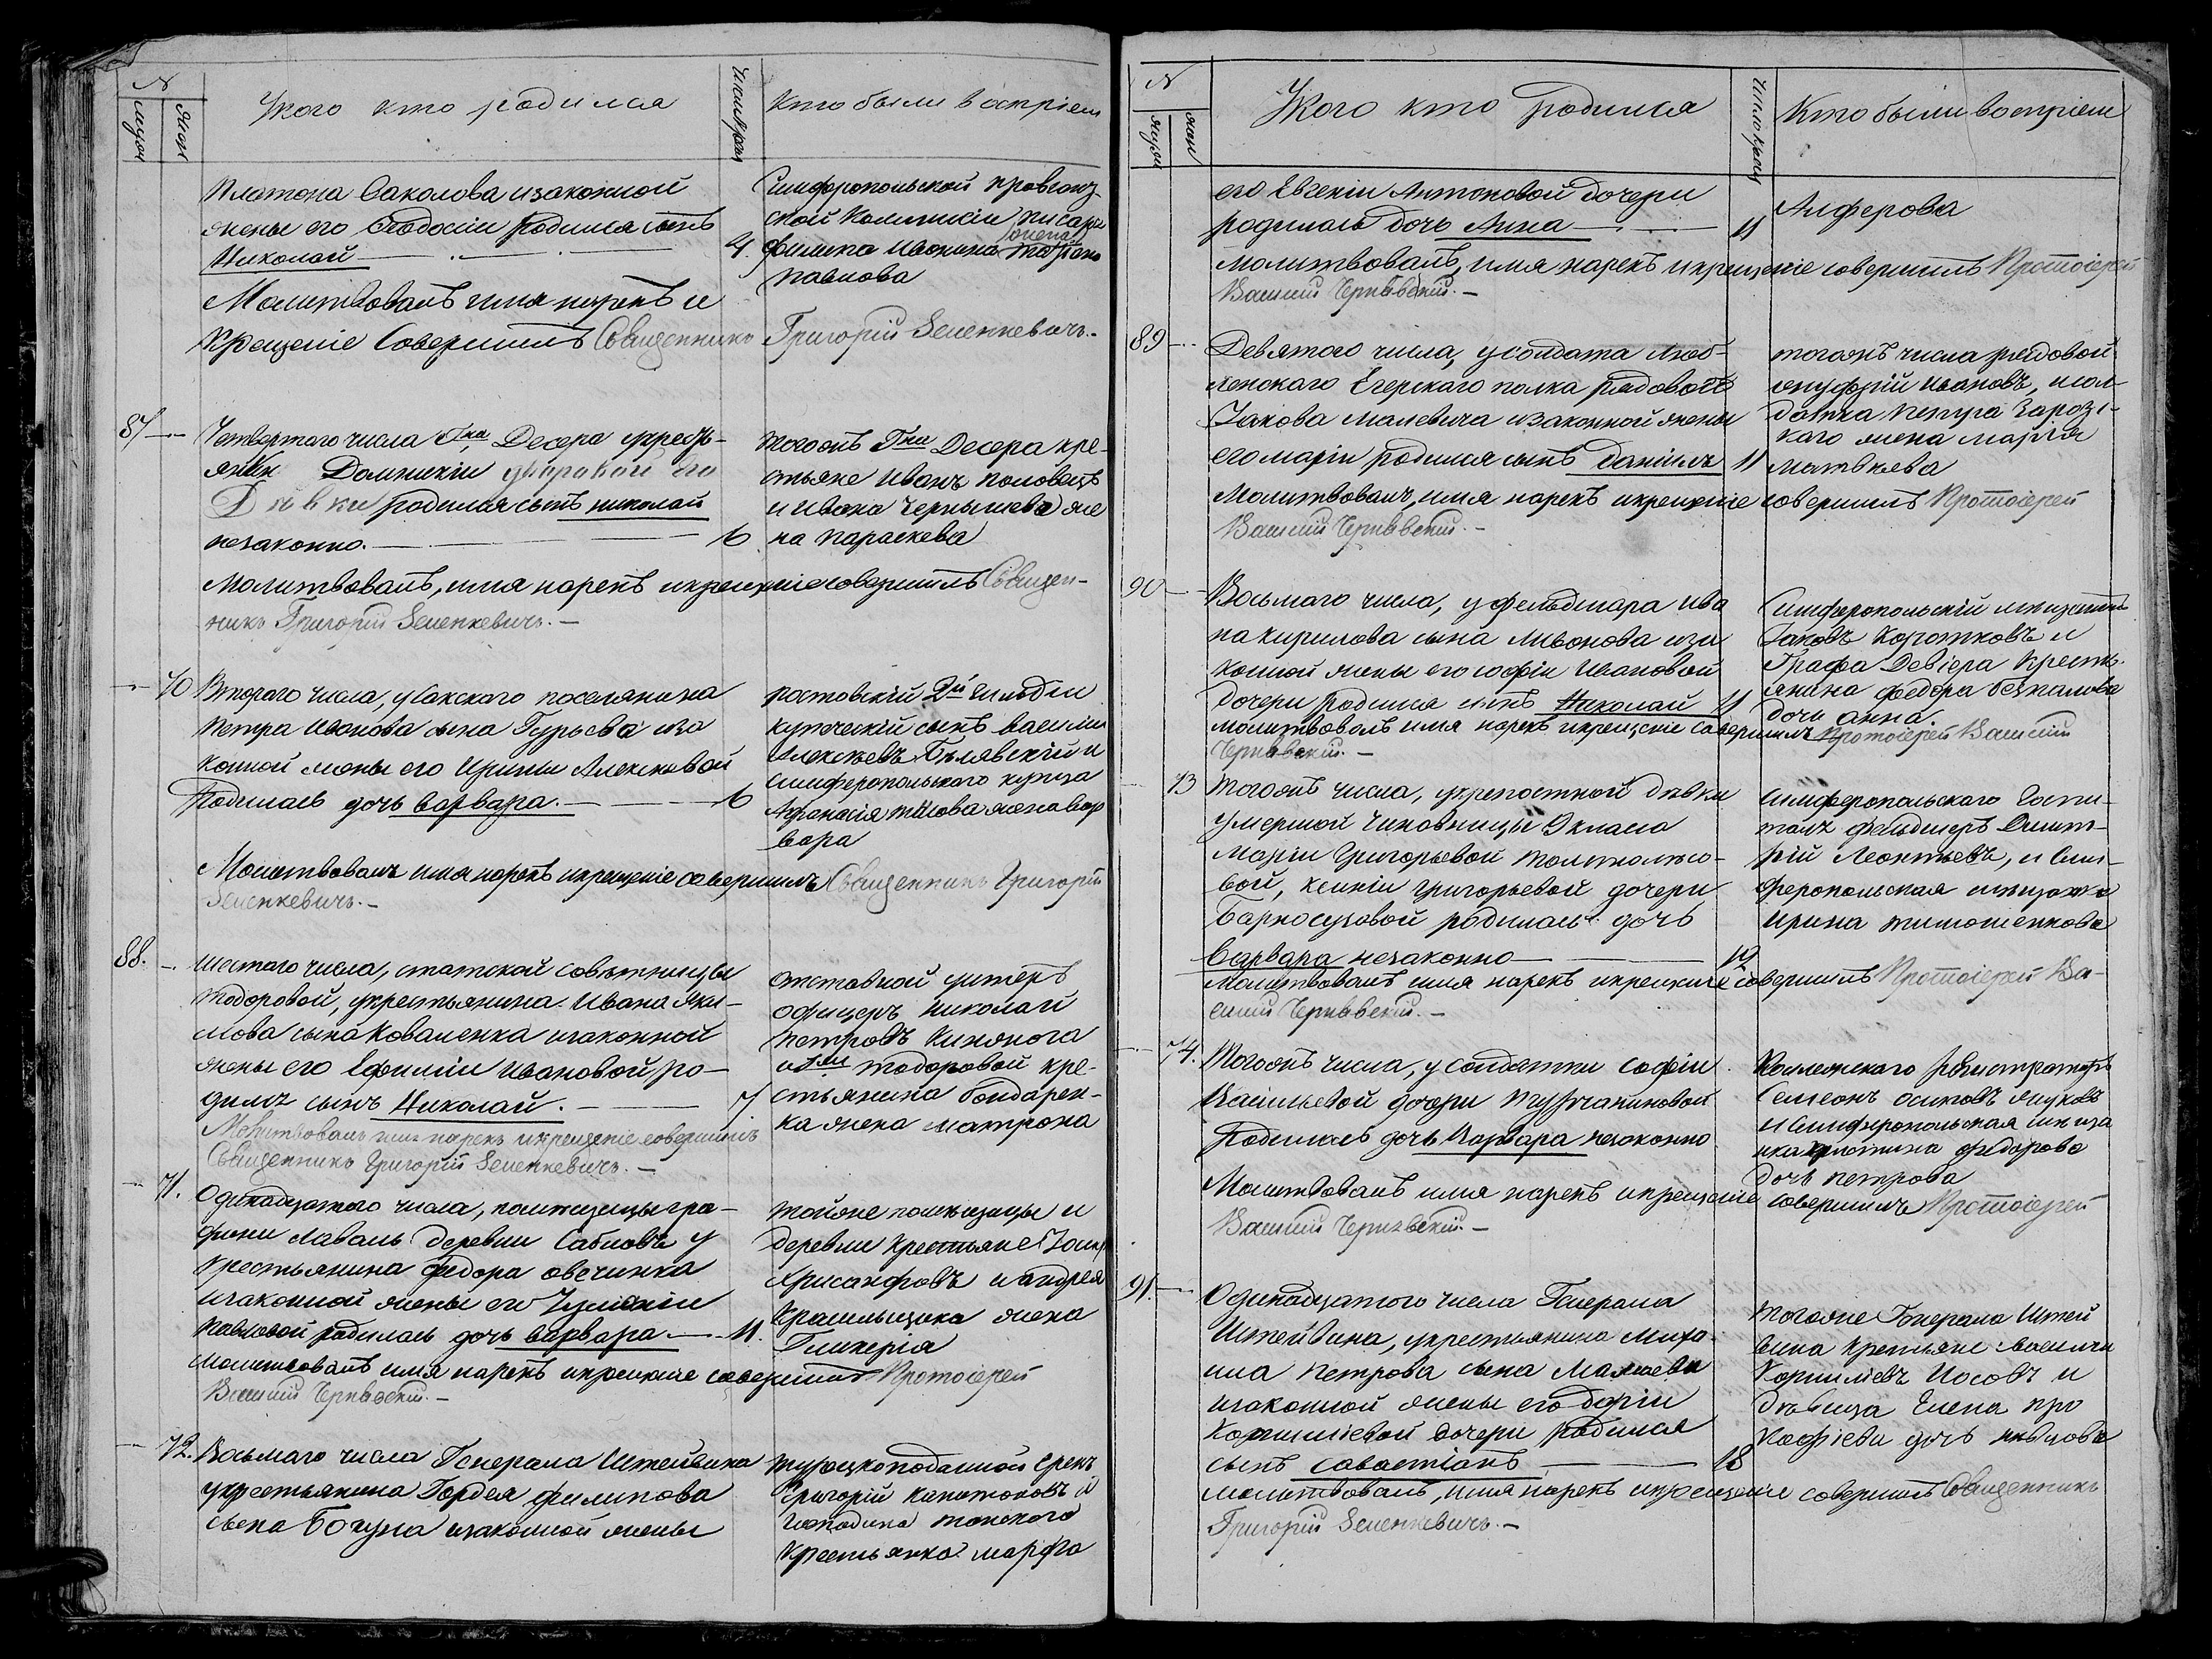 N
Муж
Жен
У кого кто родился
Число крещ
Кто были воспріем
Платона Саколова изаконной
жены его Ѳеодосіи родился сынъ
Николай 4.
Симферопольской провіянт
ской Коммисіи писаря
филипа Иванина жена Татіана
Павлова
Молитвовалъ имя нарекъ и
Крещеніе Совершилъ Священникъ Григорій Зеленкевичъ.
87 Четвертого числа Гна Десера укресть-
янки Домникіи
Дѣвки родился сынъ николай
незаконно. 6
тогожъ Гна Десера кре-
стьяне Иванъ половецъ
и Ивана Чернышева же
на параскева
Молитвовалъ, имя нарекъ икрещеніе совершилъ Священ-
никъ Григорій Зеленкевичъ.
70 Второго числа, уСакского поселянина
петра Иванова сына Гурьева иза
конной жены его Ирины Алексеевой
Родилась дочь варвара. 6
ростовскій 2й гильдіи
купеческій сынъ василий
Алексѣевъ Бѣлявскій и
симферопольского купца
Афанасія жена вар
вара
Молитвовалъ имя нарекъ икрещеніе совершилъ Священникъ Григорій
Зеленкевичъ.
88. шестого числа, статской совѣтницы
тодоровой, укрестьянина Ивана Яки-
мова сына Коваленка изаконной
жены его Ефиміи Ивановой ро-
дился сынъ Николай. 7
отставной унтеръ
офицеръ Николай
петровъ
и Гжи тодоровой кре-
стьянина бондарен-
ка жена матрона
Молитвовалъ имя нарекъ икрещеніе совершилъ
Священникъ Григорій Зеленкевичъ.
71. Одинадцатого числа, помещицы гра-
фини лаваль деревни Сабловъ у
крестьянина федора овечинка
изаконной жены его Іуліаніи
павловой родилась дочь варвара 11.
тойже помѣщицы и
деревни крестьяне
Хрисанфовъ и андрея
Крашильщика жена
Гликерія
Молитвовалъ имя нарекъ икрещеніе совершилъ Протоіерей
Василий Чернявскій.
72. Восьмаго числа Генерала Штейвина
укрестьянина Гордея филипова
сына Богуна изаконной жены
турецкоподанной грекъ
григорій капитоновъ и
господина
Крестьянка марфа
N
муж
жен
У кого кто родился
Число крещ
Кто были воспріем
его Евгеніи Антоновой дочери
родилась дочь Анна 11
Алферова
молитвовалъ, имя нарекъ икрещеніе совершилъ Протоіерей
Василий Чернявскій.
89 Девятого числа, усолдата люб-
ленского Егерскаго полка рядового
Іакова малевича изаконной жены
его маріи родился сынъ Даніилъ 11
тогожъ числа рядовой
онуфрій ивановъ, и сол-
датка петра
каго жена марія
матвѣева
Молитвовалъ, имя нарекъ икрещеніе совершилъ Протоіерей
Василий Чернявскій.
90 Восьмаго числа, уфельдшара ива
на кирилова сына Ливонова иза
конной жены его софіи Ивановой
дочери родился сынъ Николай 11
Симферопольскій мѣщанинъ
Іаковъ Коротковъ и
Графа Девіера Кресть-
янина федора безпалова
дочь анна.
молитвовалъ имя нарекъ икрещеніе совершилъ Протоіерей Василий
Чернявскій.
73 Тогожъ числа, укрепостной дѣвки
умершой чиновницы 9 класа
Маріи Григорьевой
вой, ксеніи григорьевой дочери
родилась дочь
Варвара незаконно 12
симферопольского Госпи-
таля фельдшеръ Димит-
рій Леонтьевъ, и Сим-
феропольская мѣщанка
ирина тимошенкова
Молитвовалъ имя нарекъ икрещеніе совершилъ Протоіерей Ва-
силий Чернявскій.
74. Тогожъ числа, у солдатки софіи
Васильевой дочери Турчаниновой
Родилась дочь варвара незаконно
Коллежского регистраторъ
Семеонъ осиповъ жуковъ
и Симферопольская мѣща
нка христина федорова
дочь петрова
Молитвовалъ имя нарекъ икрещеніе совершилъ Протоіерей
Василий Чернявскій.
91. Одинадцатого числа Генерала
Штейвина, укрестьянина Миха-
ила петрова сына
изаконной жены его
Корниліевой дочери родился
сынъ савастіанъ 13
тогоже Генерала Штей
вина крестьяне василий
Корниліевъ Носовъ и
дѣвица Елена про
кофіева дочь
Молитвовалъ, имя нарекъ икрещеніе совершилъ Священникъ
Григорій Зеленкевичъ.